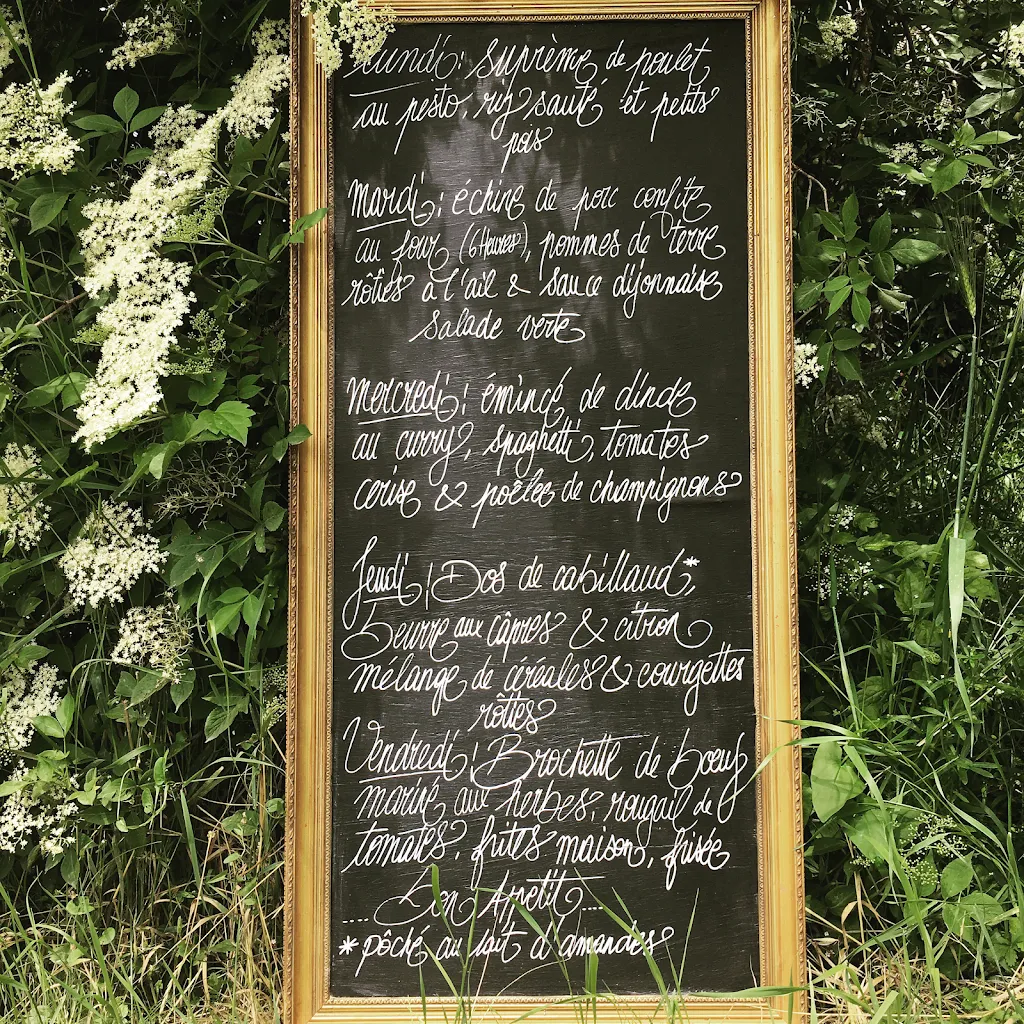 Lundi : suprême de poulet
au pesto, riz sauté et petits
pois
Mardi : échine de porc confite
au four (6 Heures), pommes de terre
rôties à l'ail & sauce dijonnaise
salade verte
Mercredi : émincé de dinde
au curry, spaghetti, tomates
cerise & poêlée de champignons
Jeudi : Dos de cabillaud*,
Beurre aux câpres & citron
mélange de céréales & courgettes
rôties
Vendredi : Brochette de boeuf
mariné aux herbes, rougail de
tomates, frites maison, frisée
.... Bon Appétit ....
* pôché au lait d'amandes